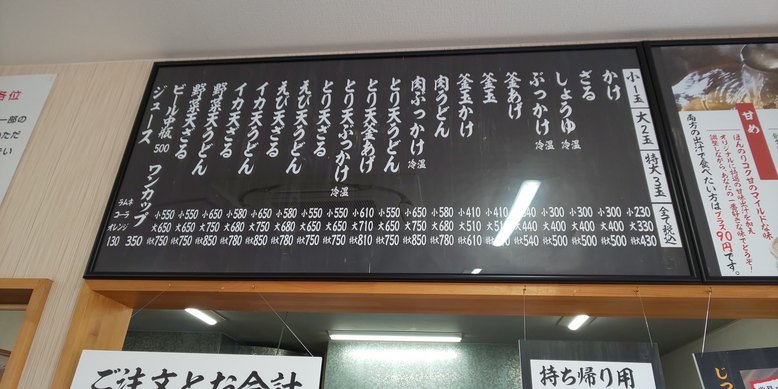 小1玉 大2玉 特大3玉 全て税込
かけ 小230 大330 特大430
ざる 小300 大400 特大500
しょうゆ 冷温 小300 大400 特大500
ぶっかけ 冷温 小300 大400 特大500
釜あげ 440 特大540
釜玉 小410 大510
釜玉かけ 小410 大510 特大610
肉うどん 小580 大680 特大780
肉ぶっかけ 冷温 小650 大750 特大850
とり天うどん 小550 大650 特大750
とり天釜あげ 小610 大710 特大810
とり天ぶっかけ 冷温 小550 大650 特大750
とり天ざる 小550 大650 特大750
えび天うどん 小580 大680 特大780
えび天ざる 小650 大750 特大850
イカ天うどん 小580 大680 特大780
イカ天ざる 小650 大750 特大850
野菜天うどん 小550 大650 特大750
野菜天ざる 小550 大650 特大750
ビール中瓶 500 ワンカップ 350
ジュース ラムネ コーラ オレンジ 130
甘め
ほんのりコク甘のマイルドな味
両方の出汁で食べたい方は
プラス90円です。
各位
一部の
ご注文とお会計
持ち帰り用